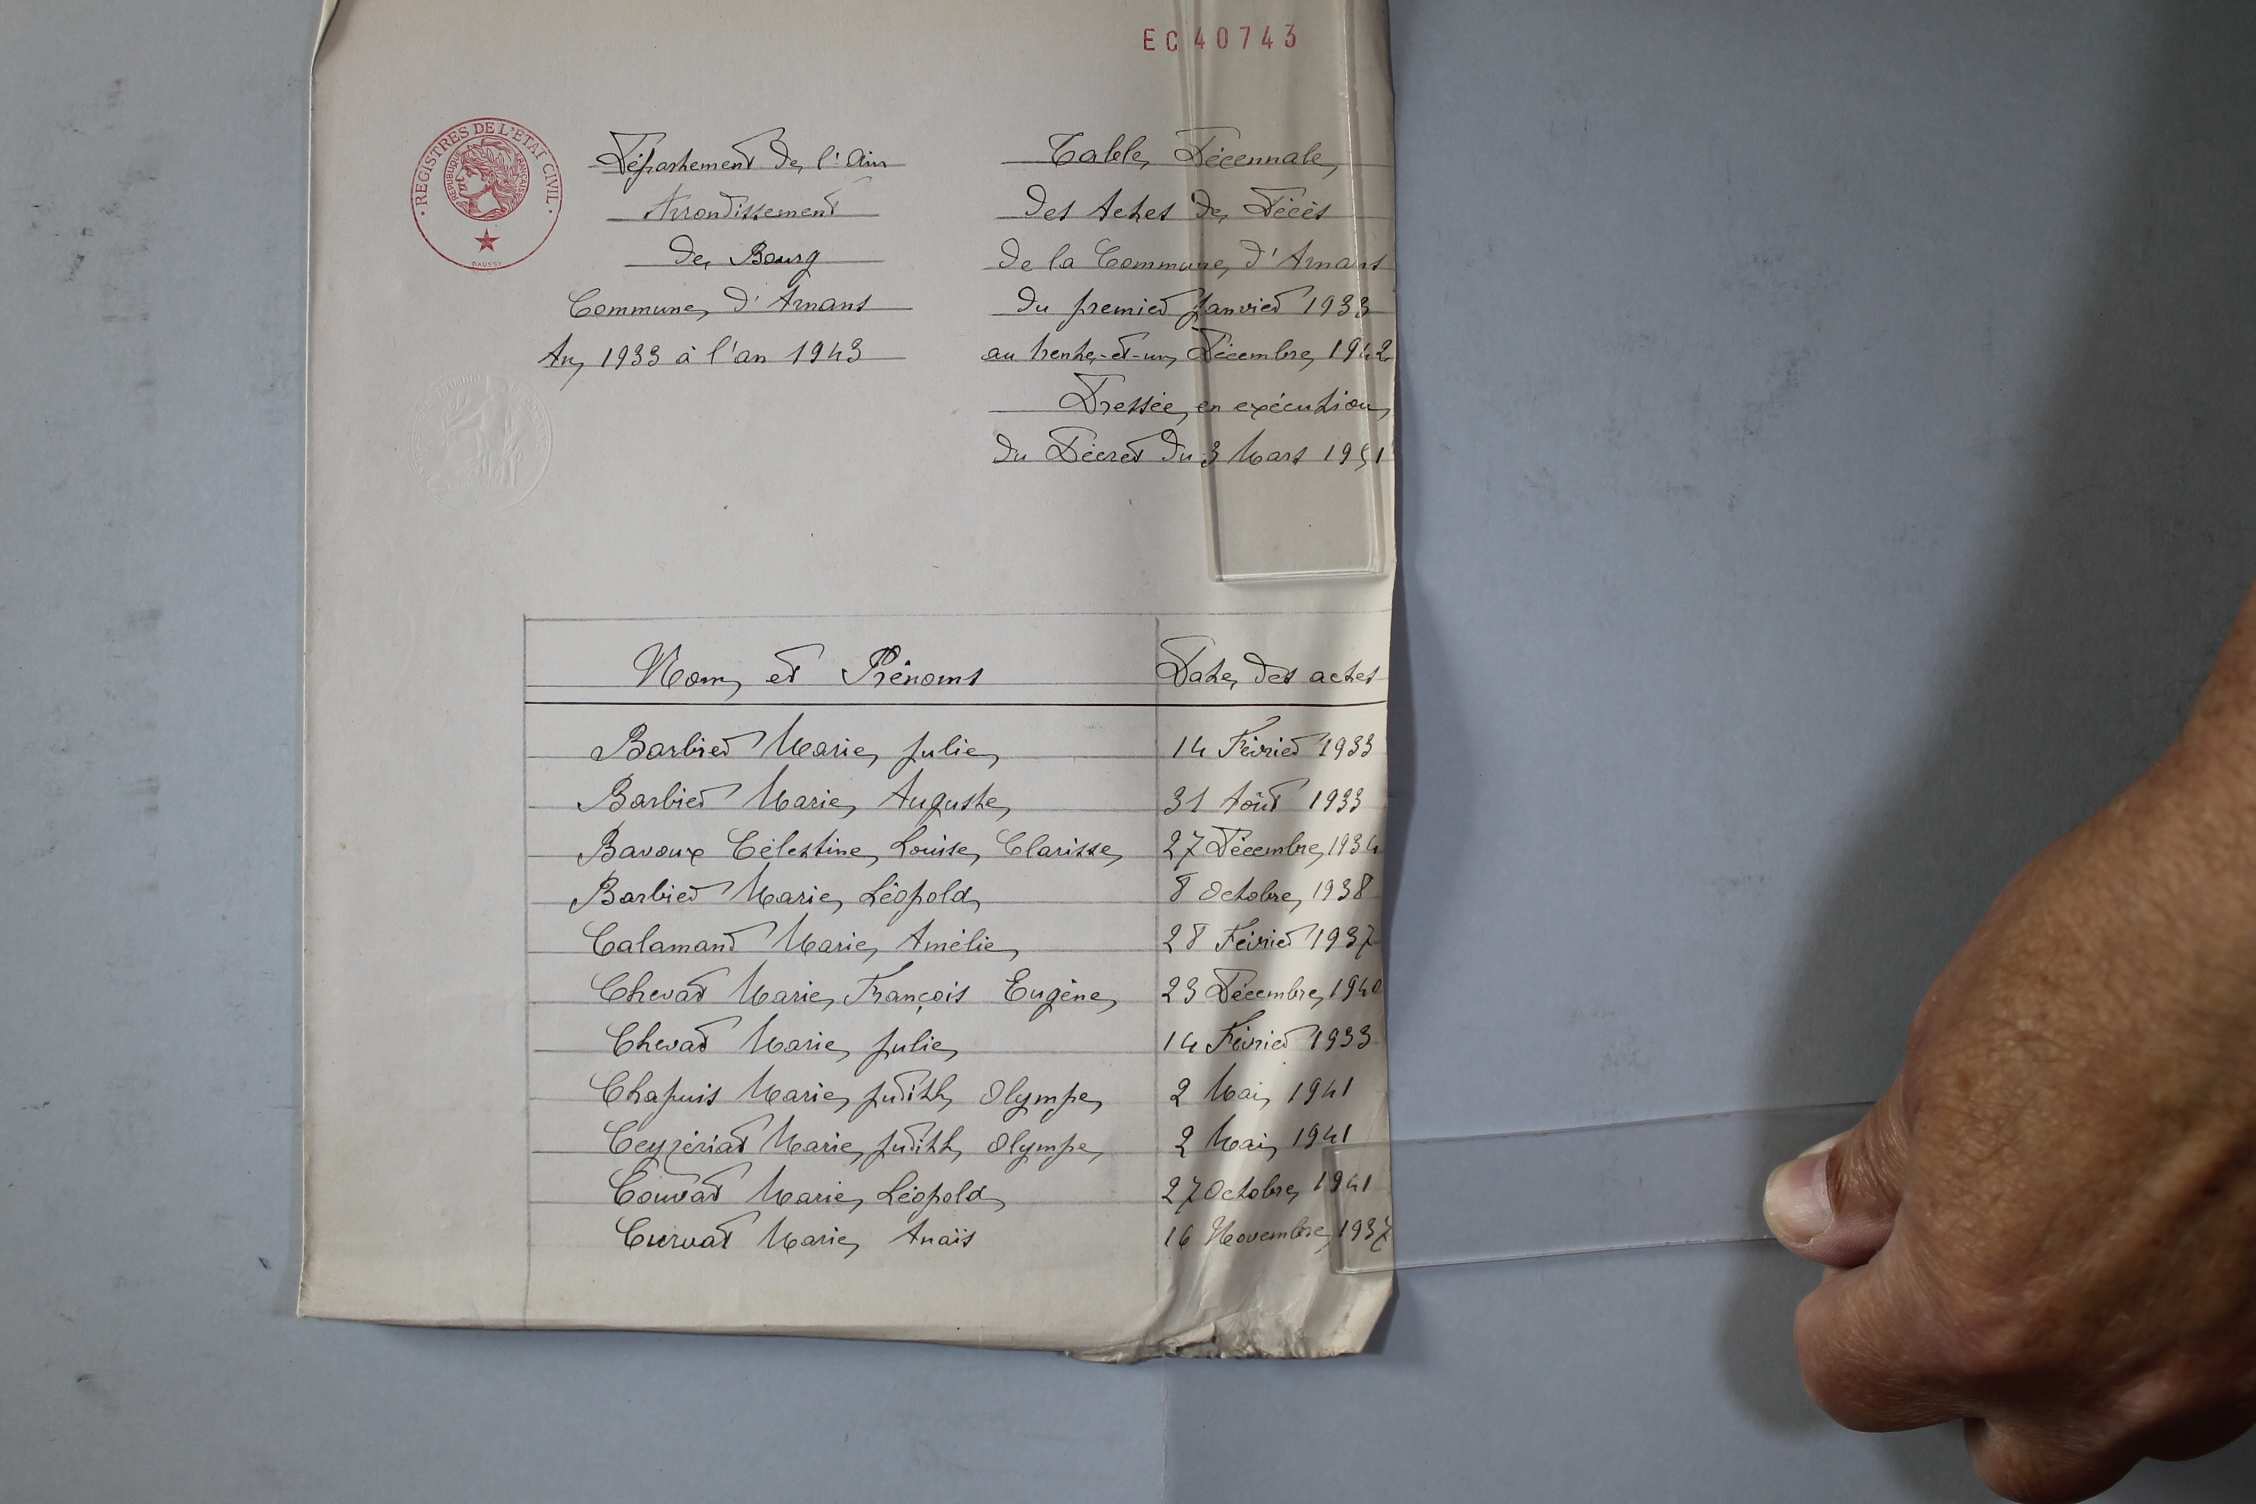 EC 40743
REGISTRES DE L'ÉTAT CIVIL
RÉPUBLIQUE FRANÇAISE
DAUSSY
Département de l'Ain
Arrondissement
de Bourg
Commune d'Arnans
An 1933 à l'an 1943
Table Décennale
des Actes de Décès
de la Commune d'Arnans
du premier Janvier 1933
au trente-et-un Décembre 1942
Dressée en exécution
du Décret du 3 Mars 1951
Nom et Prénoms Date des actes
Barbier Marie Julie 14 Février 1933
Barbier Marie Auguste 31 Août 1933
Bavoux Célestine Louise Clarisse 27 Décembre 1934
Barbier Marie Léopold 8 Octobre 1938
Calamand Marie Amélie 28 Février 1937
Chevat Marie François Eugène 23 Décembre 1940
Chevat Marie Julie 14 Février 1933
Chapuis Marie Judith Olympe 2 Mai 1941
Ceyzériat Marie Judith Olympe 2 Mai 1941
Convat Marie Léopold 27 Octobre 1941
Curvat Marie Anaïs 16 Novembre 1937